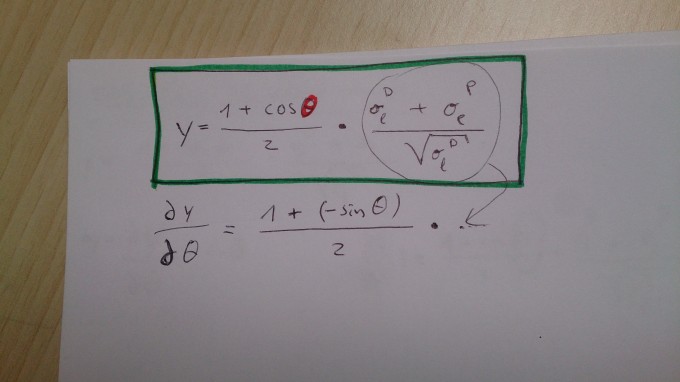 y = \frac{1 + cos θ}{2} \cdot \frac{σ_e^D + σ_e^P}{\sqrt{σ_e^D}}
\frac{∂y}{∂θ} = \frac{1 + (-sin θ)}{2} \cdot .